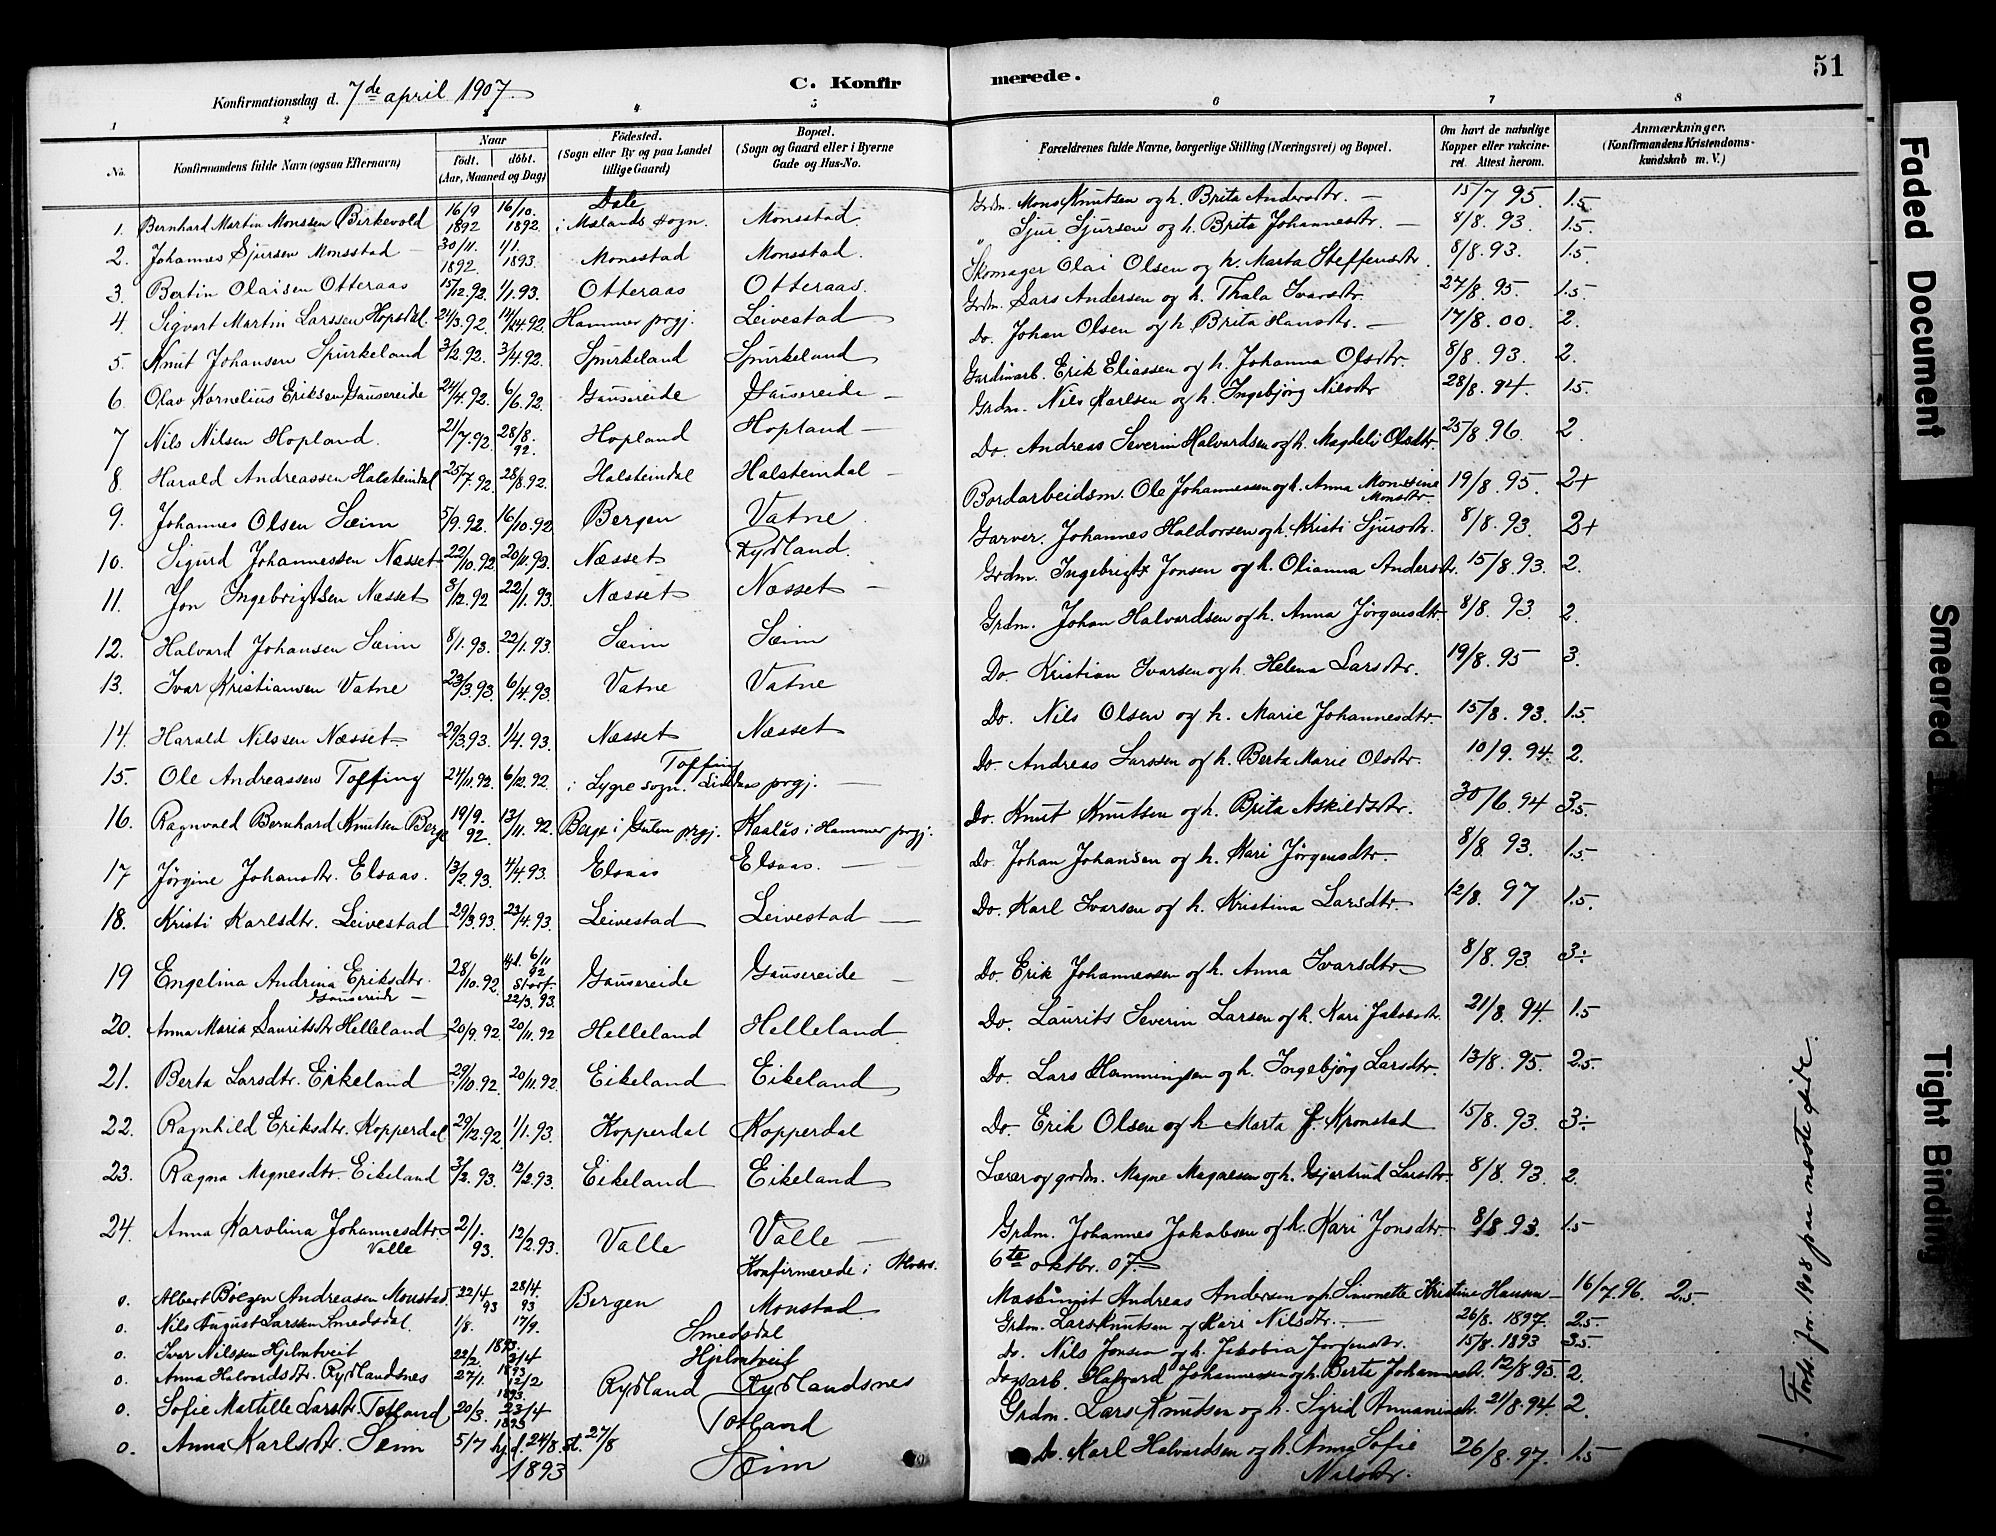 C. Konfirmerede.
51
Konfirmationsdag d. 7de april 1907.
1 2 3 4 5 6 7 8
No. Konfirmandens fulde Navn (ogsaa Efternavn) Naar født. døbt. (Aar, Maaned og Dag) Fødested. (Sogn eller By og paa Landet tillige Gaard) Bopæl. (Sogn og Gaard eller i Byerne Gade og Hus-No. Forældrenes fulde Navne, borgerlige Stilling (Næringsvei) og Bopæl. Om havt de naturlige Kopper eller vakcineret. Attest herom. Anmærkninger. (Konfirmandens Kristendomskundskab m. V.)
1. Bernhard Martin Monssen Birkevold 16/9 1892 16/10. 1892. Dale i Mælands sogn. Monsstad. Grdm. Mons Knutsen og h. Brita Andersdtr. — 15/7 95. 1.5
2. Johannes Sjursen Monsstad — 30/11. 1892 1/1. 1893. Monsstad Monsstad. " Sjur Sjursen og h. Brita Johannesdtr. — 8/8. 93. 1.5.
3. Bertin Olaisen Otteraas 15/12.92. 1/1.93. Otteraas Otteraas. Skomager Olai Olsen og h. Marta Steffensdtr. 8/8.93. 1.5.
4. Sigvart Martin Larssen Hopsdal 24/3.92. 14/24.92. Hammer prgj. Leivestad Grdm. Lars Andersen og h. Thala Ivarsdtr. 27/8.95. 1.5
5. Knut Johansen Spurkeland 3/2.92. 3/4.92. Spurkeland Spurkeland Do. Johan Olsen og h. Brita Hansdtr. — 17/8.00. 2.
6. Olav Kornelius Eriksen Gausereide 24/4.92. 6/6.92. Gausereide Gausereide — Gardinarb. Erik Eliassen og h. Johanna Olsdtr. 8/8.93. 2.
7 Nils Nilsen Hopland. 21/7.92. 28/8. 92. Hopland Hopland — Grdm. Nils Karlsen og h. Ingebjørg Nilsdtr 28/8.94. 1.5
8. Harald Andreassen Halsteindal 25/7.92. 28/8.92. Halsteindal Halsteindal — Do. Andreas Severin Halvardsen og h. Magdeli Olsdtr. 25/8.96. 2
9. Johannes Olsen Sæim 5/9.92. 16/10.92 Bergen Vatne. Bordarbeidsm. Ole Johannessen og h. Anna Monsine Monsdtr. 19/8.95. 2+
10. Sigurd Johannessen Næsset 22/10.92. 20/11.92. Næsset Rydland. Garver. Johannes Haldorsen og h. Kristi Sjursdtr. 8/8.93. 2+
11. Jon Ingebrigtsen Næsset 8/12.92 22/1.93. Næsset Næsset — Grdm. Ingebrigt Jonsen og h. Olianna Andersdtr. 15/8.93. 2.
12. Halvard Johansen Sæim 8/1.93. 22/1.93. Sæim Sæim Grdm. Johan Halvardsen og h. Anna Jørgensdtr. 8/8.93 2.
13. Ivar Kristiansen Vatne 23/3.93. 6/4.93. Vatne Vatne Do. Kristian Ivarsen og h. Helena Larsdtr. 19/8.95 3.
14. Harald Nilssen Næsset. 29/3.93. 1/4.93. Næsset Næsset Do. Nils Olsen og h. Marie Johannesdtr. 15/8.93. 1.5.
15. Ole Andreassen Toffing 24/11.92. 6/12.92. Toffing i Lygre sogn. Lindaas prgj. — Do. Andreas Larssen og h. Berta Marie Olsdtr. 10/9.94. 2.
16. Ragnvald Bernhard Knutsen Berge 19/9. 92. 13/11.92. Berge i Gulen prgj. Kaalås i Hammer prgj. Do. Knut Knutsen og h. Brita Askildsdtr. 30/6.94 3.5.
17 Jørgine Johansdtr. Elsaas. 13/2.93. 4/4.93. Elsaas Elsaas. — Do. Johan Johansen og h. Kari Jørgensdtr. 8/8.93. 1.5
18. Kristi Karlsdtr. Leivestad 29/3.93. 23/4.93. Leivestad Leivestad — Do. Karl Ivarsen og h. Kristina Larsdtr. 12/8.97 1.5.
19 Engelina Andrina Eriksdtr. Gausereide — 28/10.92. hjd. 6/11 92 Stadf. 22/3.93. Gausereide Gausereide — Do. Erik Johannessen og h. Anna Ivarsdtr 8/8.93. 3÷
20. Anna Maria Lauritsdtr. Helleland 20/9.92. 20/11.92 Helleland Helleland. Do. Laurits Severin Larsen og h. Kari Jakobsdtr. 21/8.94. 1.5
21. Berta Larsdtr. Eikeland 29/10.92. 20/11.92. Eikeland Eikeland Do. Lars Hammingsen og h. Ingebjørg Larsdtr. 13/8.95. 2.5.
22. Ragnhild Eriksdtr. Kopperdal 29/12.92. 1/1.93. Kopperdal Kopperdal Do. Erik Olsen og h Marta f. Kronstad 15/8.93. 3÷
23. Ragna Magnesdtr. Eikeland 3/2.93. 12/2.93. Eikeland Eikeland Lærer og grdm. Magne Magnesen og h. Gjertrud Larsdtr. 8/8.93. 2.
24. Anna Karolina Johannesdtr. Valle 2/1. 93. 12/2.93. Valle Valle — Grdm. Johannes Jakobsen og h. Kari Jonsdtr. 8/8.93. 1.5
Konfirmerede i 6te oktbr. 07.
o. Albert Børgen Andreasen Monstad. 22/4. 93 28/4. 93 Bergen Monstad Maskinist Andreas Andersen og Simonette Kristine Hansen — 16/7.96. 2.5
o. Nils August Larsen Smedsdal 1/8. 17/9. 1893. Smedsdal Grdm. Lars Knutsen og Kari Nilsdtr. — 26/8. 1897. 2.5.
o. Iver Nilssen Hjelmtveit 22/2. 3/4 1893 Hjelmtveit Do. Nils Jonsen og h. Jakobia Jørgensdtr. 15/8.1893 3.5
o. Anna Halvardsdtr. Rydlandsnes 27/1. 12/2 1893. Rydland Rydlandsnes Dagarb. Halvard Johannessen og h. Berta Johannesdtr. 12/8.95 2.
o. Sofie Mathilde Larsdtr. Totland 20/3. 23/4 1893 Totland Grdm. Lars Knudsen og h. Sigrid Annaniasdtr. 21/8.94. 2.
o. Anna Karlsdtr. Seim 5/7 hjd. 24/8. st. 27/8 1893 Sæim Do. Karl Halvardsen og h. Anna Sofie Nilsdtr. 26/8.97. 1.5
Forts. for 1908 paa næste side.
Faded Document
Smeared
Tight Binding